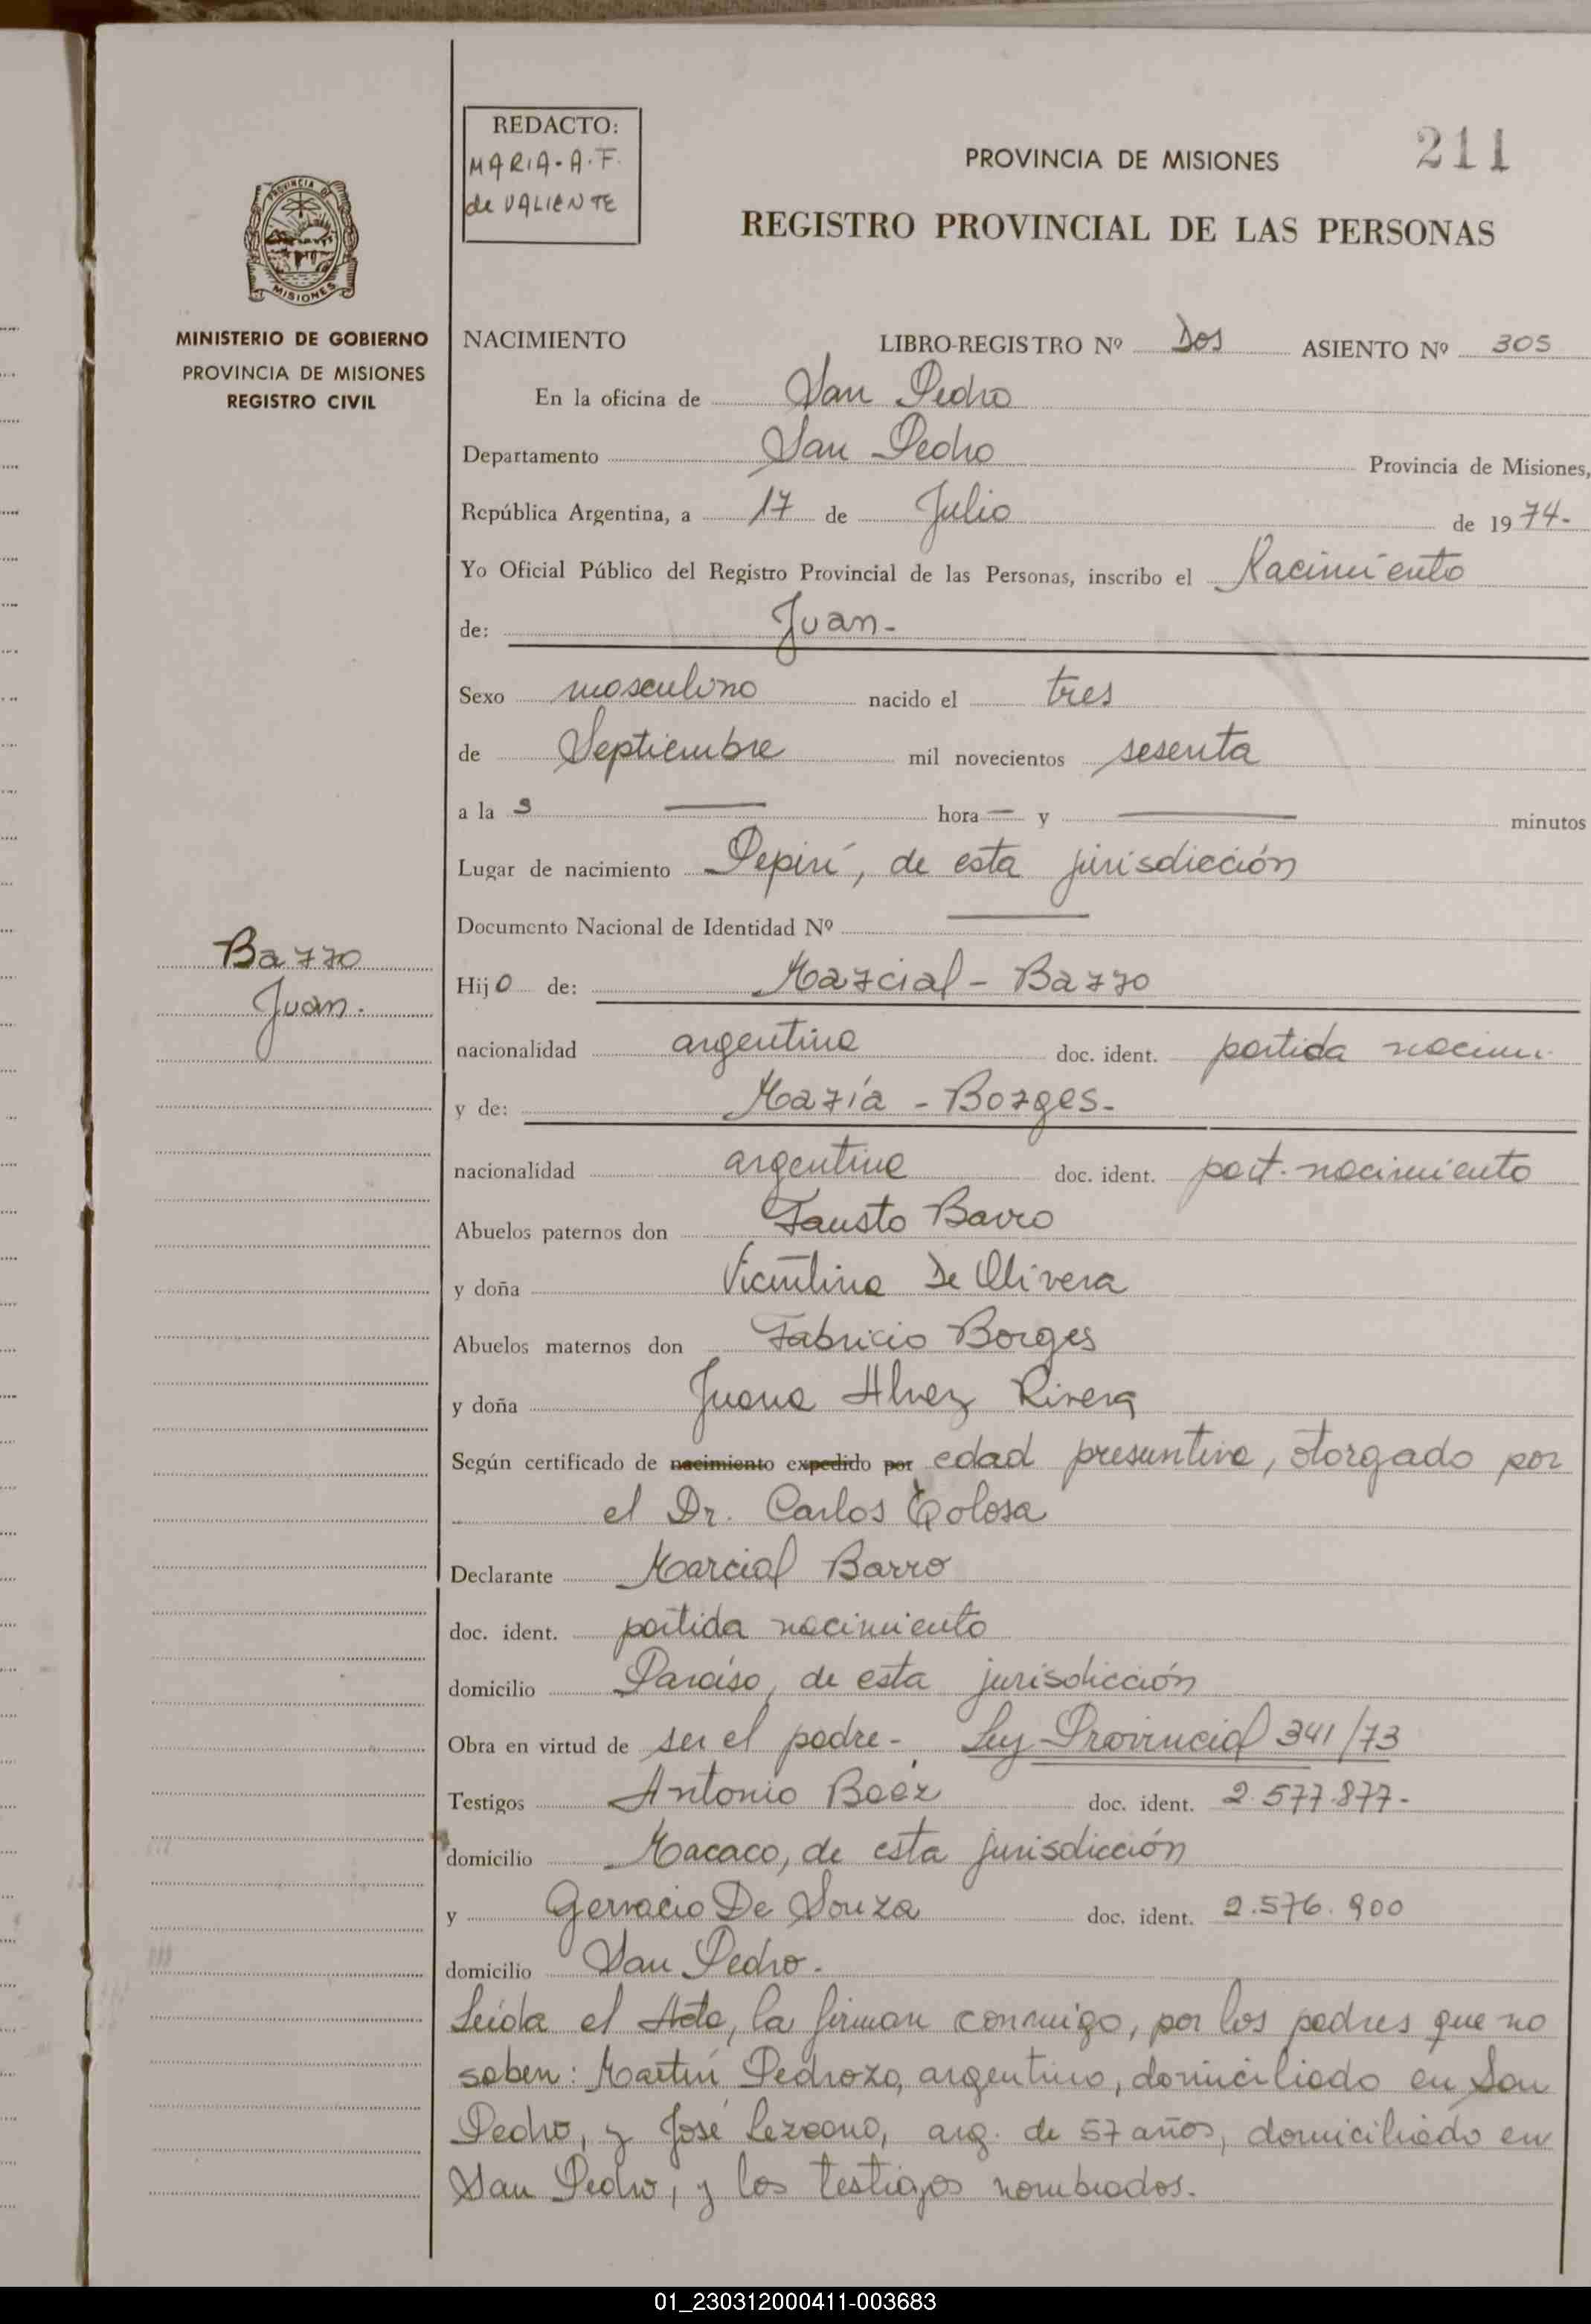 REDACTO:
MARIA-A.F.
de VALIENTE
PROVINCIA DE MISIONES
211
REGISTRO PROVINCIAL DE LAS PERSONAS
PROVINCIA DE
MISIONES
MINISTERIO DE GOBIERNO
PROVINCIA DE MISIONES
REGISTRO CIVIL
NACIMIENTO LIBRO-REGISTRO Nº Dos ASIENTO Nº 305
En la oficina de San Pedro
Departamento San Pedro Provincia de Misiones,
República Argentina, a 17 de Julio de 1974-
Yo Oficial Público del Registro Provincial de las Personas, inscribo el Nacimiento
de: Juan-
Sexo masculino nacido el tres
de Septiembre mil novecientos sesenta
a la s — hora — y — minutos
Lugar de nacimiento Pepirí, de esta jurisdicción
Documento Nacional de Identidad Nº —
Barro
Juan.
Hijo de: Marcial - Barro
nacionalidad argentina doc. ident. partida nacimi.
y de: María - Borges-
nacionalidad argentina doc. ident. part. nacimiento
Abuelos paternos don Fausto Barro
y doña Vicentina De Olivera
Abuelos maternos don Fabricio Borges
y doña Juana Alvez Rivera
Según certificado de nacimiento expedido por edad presuntiva, otorgado por
el Dr. Carlos Tolosa
Declarante Marcial Barro
doc. ident. partida nacimiento
domicilio Paraíso, de esta jurisdicción
Obra en virtud de ser el padre- Ley Provincial 341/73
Testigos Antonio Baéz doc. ident. 2.577.877-
domicilio Macaco, de esta jurisdicción
y Gervacio De Souza doc. ident. 2.576.900
domicilio San Pedro.
Leída el Acta, la firman conmigo, por los padres que no
saben: Martín Pedrozo, argentino, domiciliado en San
Pedro, y José Lezcano, arg. de 57 años, domiciliado en
San Pedro, y los testigos nombrados.
01_230312000411-003683